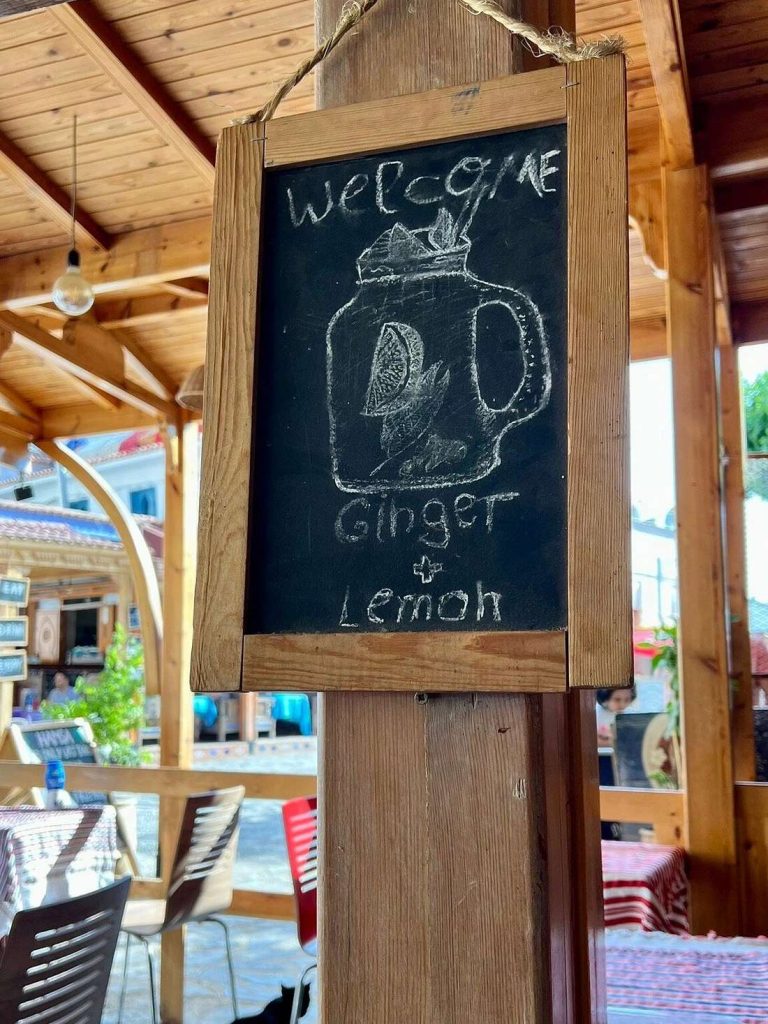 WelcoME
GingeT
+
Lemon
EAT